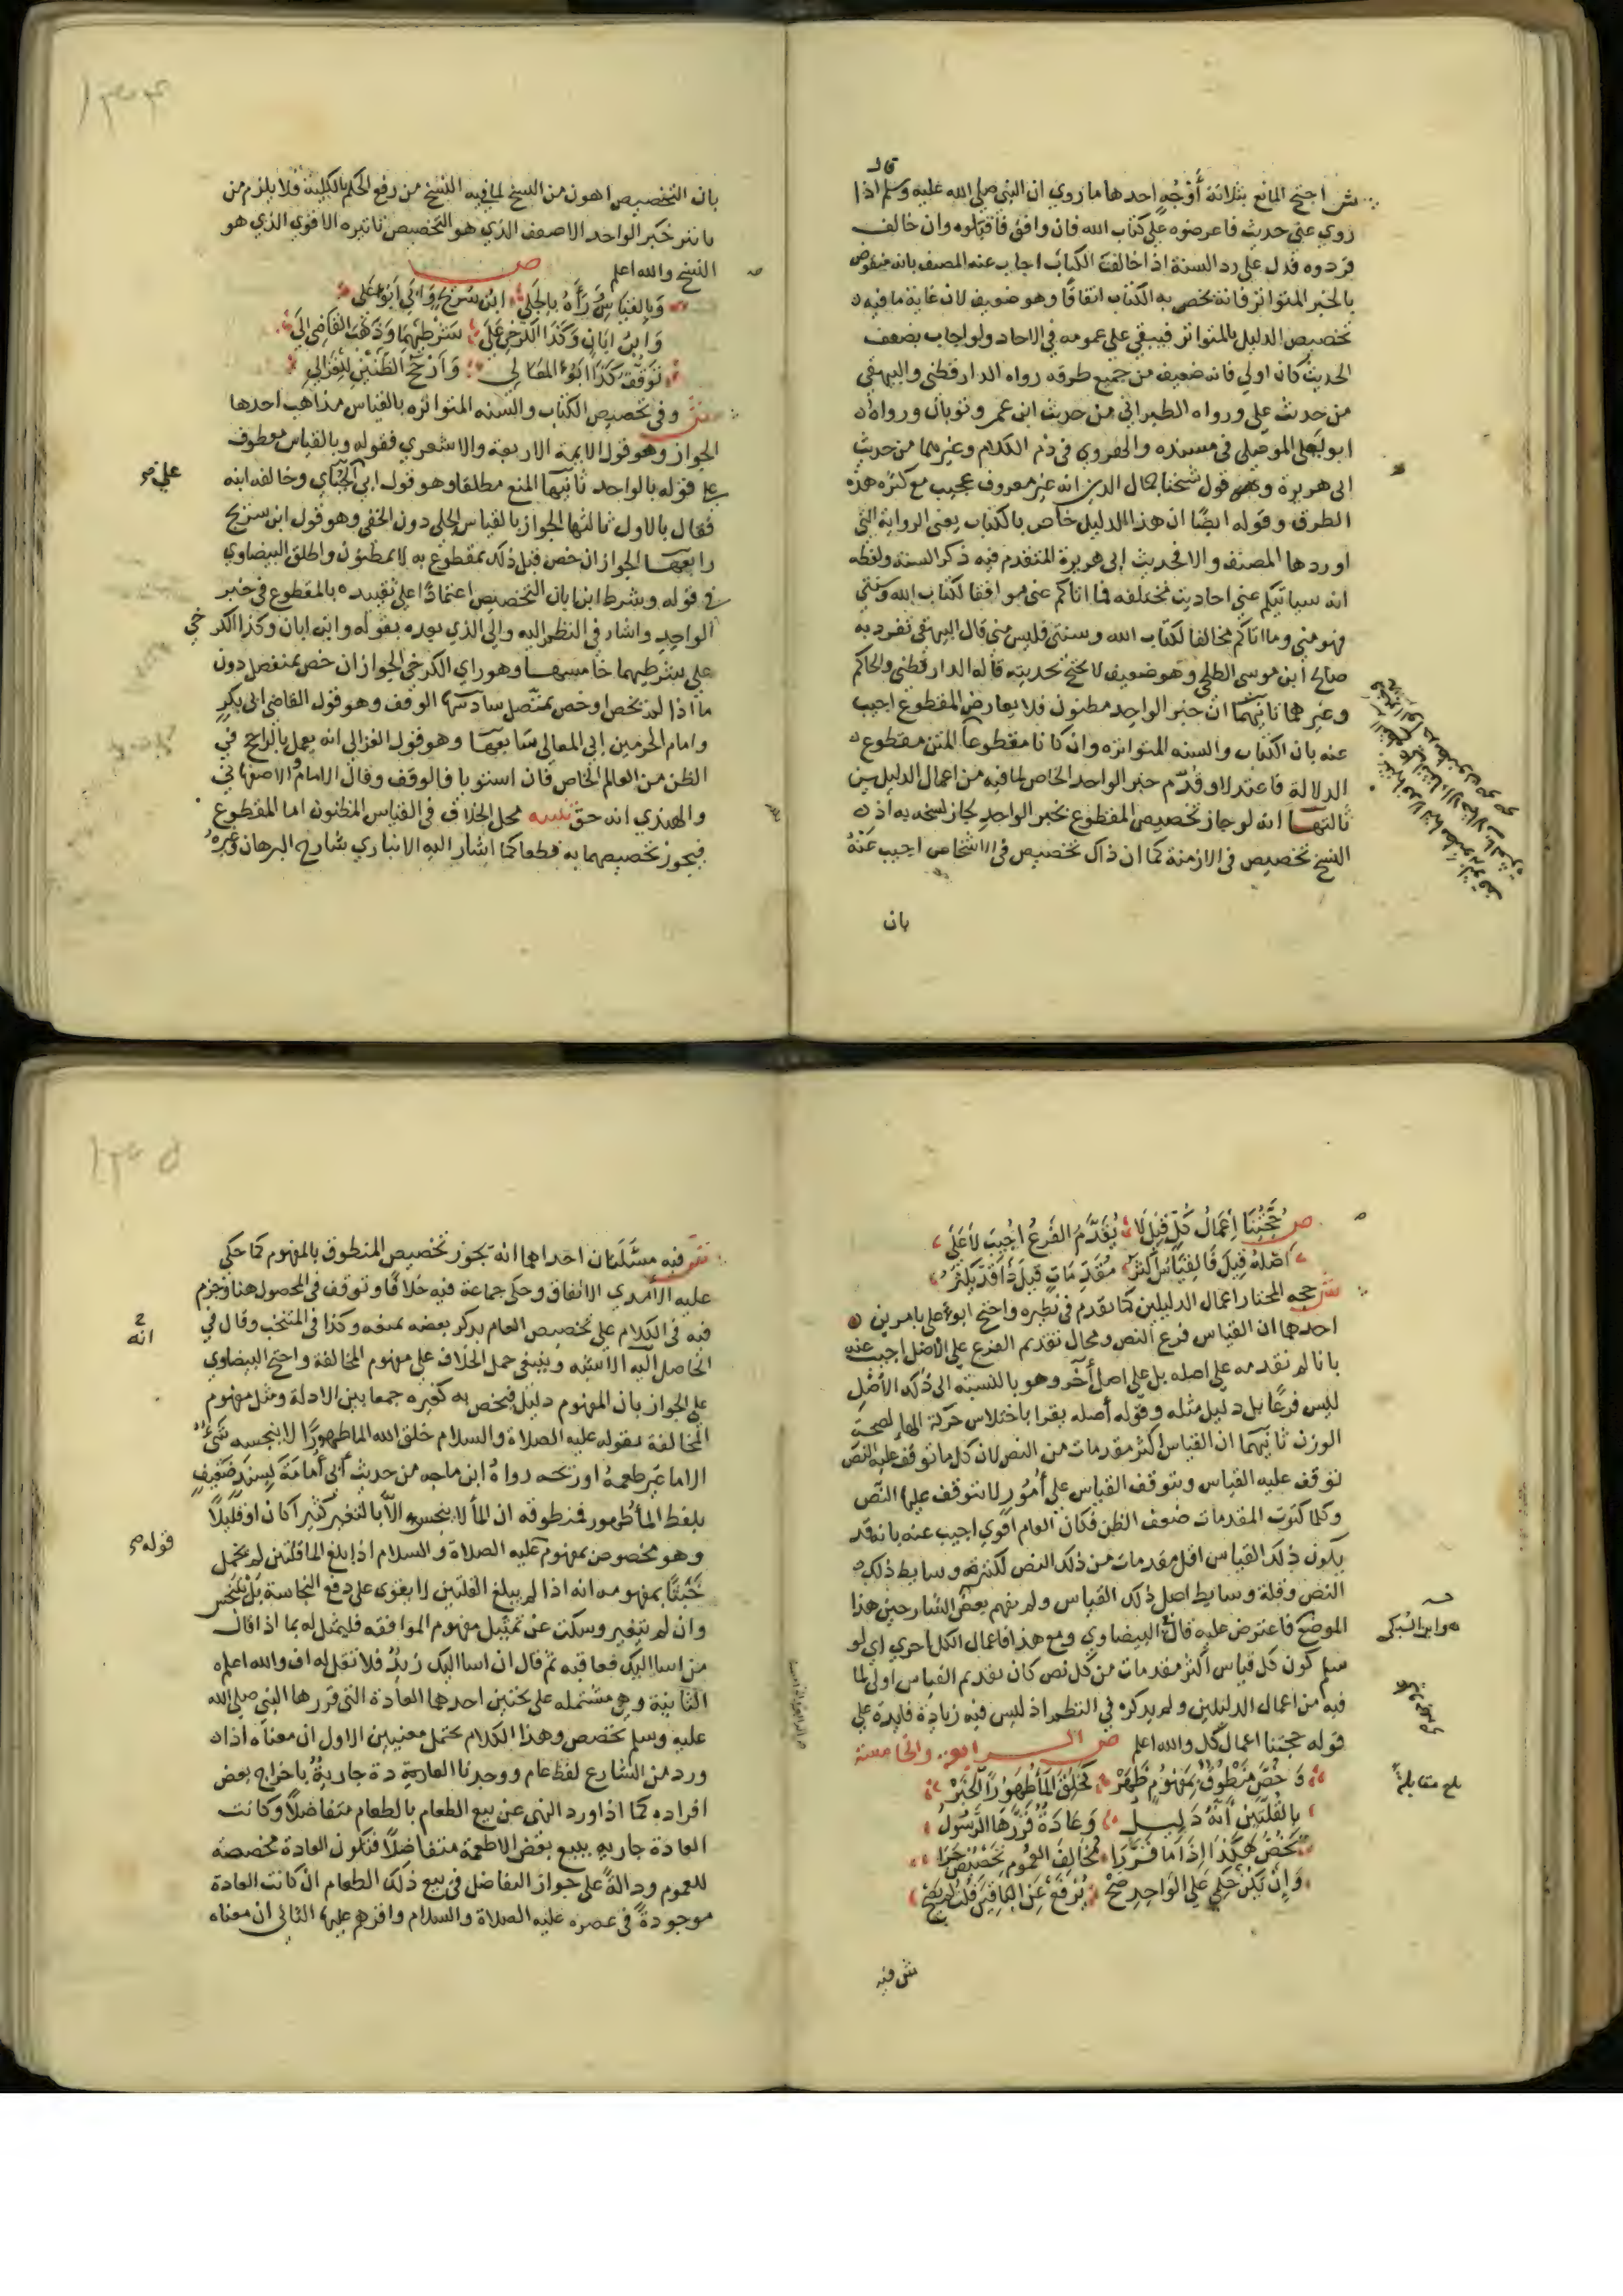 قال
ش احتج المانع بثلاثة أَوْجُهٍ احدها ما روي ان النبي صلي الله عليه وسلم اذا
روي عني حديث فاعرضوه علي كتاب الله فان وافق فاقبلوه وان خالف
فردوه فدل علي رد السنة اذا خالفت الكتاب اجاب عنه المصنف بانه منقوض
بالخبر المتواتر فانه يخص به الكتاب اتفاقا وهو ضعيف لان غاية ما فيه
تخصيص الدليل بالمتواتر فيبقي علي عمومه في الاحاد ولو اجاب بضعف
الحديث كان اولي فانه ضعيف من جميع طرقه رواه الدارقطني والبيهقي
من حديث علي ورواه الطبراني من حديث ابن عمر وثوبان ورواه
ابو يعلي الموصلي في مسنده والهروي في ذم الكلام وغيرهما من حديث
ابي هريرة وقول شيخنا جمال الدين انه غير معروف عجيب مع كثره هذه
الطرق وقوله ايضا ان هذا الدليل خاص بالكتاب يعني الرواية التي
اوردها المصنف والا فحديث ابي هريرة المتقدم فيه ذكر السنة ولفظه
انه سياتيكم عني احاديث مختلفه فما اتاكم عني موافقا لكتاب الله وسنتي
فهو مني وما اتاكم مخالفا لكتاب الله وسنتي فليس مني قال البيهقي تفرد به
صالح ابن موسى الطلحي وهو ضعيف لا يحتج بحديثه قاله الدارقطني والحاكم
وغيرهما ثانيهما ان خبر الواحد مظنون فلا يعارض المقطوع اجيب
عنه بان الكتاب والسنه المتواتره وان كانا مقطوعا المتن مقطوع
الدلالة فاعتدلا وقدم خبر الواحد الخاص لما فيه من اعمال الدليلين
ثالثها انه لو جاز تخصيص المقطوع بخبر الواحد لجاز نسخه به اذ
النسخ تخصيص في الازمنة كما ان ذاك تخصيص في الاشخاص اجيب عنه
بان
١٣٠٤
بان التخصيص اهون من النسخ لما فيه النسخ من رفع الحكم بالكلية فلا يلزم من
تاثير خبر الواحد الاضعف الذي هو التخصيص تاثيره الاقوي الذي هو
النسخ والله اعلم ص
وَبِالقِيَاسِ رَآهُ بِالجَلِي ابن سُرَيْجٍ وَابي أَبُو عَلي
وَابنُ ابَانٍ وَكَذَا الكَرخِي عَلَى شَرْطِهِمَا وَذَهَبَ القَاضِي الَي
تَوَقُّفٍ كَذَا أبُو المَعَالي وَأَرْجَحُ الظَّنَّيْنِ لِلْغَزَالي
ش وفي تخصيص الكتاب والسنه المتواتره بالقياس مذاهب احدها
الجواز وهو قول الايمة الاربعة والاشعري فقوله وبالقياس معطوف
علي قوله بالواحد ثانيها المنع مطلقا وهو قول ابي علي الجبّاي وخالفه ابنه
فقال بالاول ثالثها الجواز بالقياس الجلي دون الخفي وهو قول ابن سريج
رابعها الجواز ان خص قبل ذلك بمقطوع به لا بمظنون واطلق البيضاوي
في قوله وشرط ابن ابان التخصيص اعتمادا علي تقييده بالمقطوع في خبر
الواحد واشار في النظم اليه والي الذي بعده بقوله وابن ابان وكذا الكرخي
علي شرطيهما خامسها وهو راي الكرخي الجواز ان خص بمنفصل دون
ما اذا لم يخص او خص بمتصل سادسها الوقف وهو قول القاضي ابي بكر
وامام الحرمين ابي المعالي سابعها وهو قول الغزالي انه يعمل بالراجح في
الظن من العام الخاص فان استويا فالوقف وقال الامام والاصفهاني
والهندي انه حق تنبيه محل الخلاف في القياس المظنون اما المقطوع
فيجوز تخصيصهما به قطعا كما اشار اليه الانباري شارح البرهان وغيره
ص حُجَّتُنَا اِعْمَالُ كُلٍّ قِيلَ لَا يُقَدَّمُ الفَرعُ اُجِيبَ لَا عَلَى
اَصْلِهِ قِيلَ فَالقِيَاسُ أكثَرُ مُقَدِّمَاتٍ قِيلَ ذَا قَد يَكثرُ
ش حجه المختار اعمال الدليلين كما تقدم في نظيره واحتج ابو علي بامرين
احدها ان القياس فرع النص ومحال تقديم الفرع علي الاصل اجيب عنه
بانا لم نقدمه علي اصله بل علي اصل أخر وهو بالنسبة الي ذلك الأصل
ليس فرعًا بل دليل مثله وقوله أصله يقرا باختلاس حركة الهاء لصحة
الوزن ثانيهما ان القياس اكثر مقدمات من النص لان كل ما توقف عليه النص
توقف عليه القياس ويتوقف القياس علي أمُورٍ لا يتوقف عليها النّص
وكلما كثرت المقدمات ضعف الظن فكان العام اقوي اجيب عنه بانه قد
يكون ذلك القياس اقل مقدمات من ذلك النص لكثرة وسايط ذلك
النص وقلة وسايط اصل ذلك القياس ولم يفهم بعض الشارحين هذا
الموضع فاعترض عليه قال البيضاوي ومع هذا فاعمال الكل احري اي لو
سلم كون كل قياس أكثر مقدمات من كل نص كان تقديم القياس اولى لما
فيه من اعمال الدليلين ولم يذكره في النظم اذ ليس فيه زيادة فايدة علي
قوله حجتنا اعمال كل والله اعلم ص الرابعه والخامسة
وَخُصَّ مَنْطُوقٌ بِمَفهُومٍ ظَهَرْ كَخَلَقَ المَا طَهُورًا الخَبَرْ
بِالقُلَّتَيْنِ أنَّهُ دَلِيلُ وَعَادَةٌ قَرَّرَهَا الرَّسُولُ
تَخُصُّ هٰكَذَا اِذَا مَا قَرَّرَا مُخَالِفَ العُمُومِ تَخْصِيصٌ جَرَا
وَإِنْ يَكُنْ حُكمي عَلَي الوَاحِدِ صَحْ يُرْفَعْ عَنِ البَاقِينَ قُلتُ لَمْ يَصِحْ
هو ابن السبكي
بلغ مقابلةً
ش فيه
١٣٠٥
ش فيه مسَّلتان احداهما انه يجوز تخصيص المنطوق بالمفهوم كما حكي
عليه الآمدي الاتفاق وحكي جماعة فيه خلافًا وتوقف في المحصول هنا وجزم
فيه في الكلام علي تخصيص العام بذكر بعضه بمنعه وكذا في المنتخب وقال في
الحاصل انه الاشبه وينبغي حمل الخلاف علي مفهوم المخالفة واحتج البيضاوي
علي الجواز بان المفهوم دليل فيخص به كغيره جمعا بين الادلة ومثل مفهوم
المخالفة بقوله عليه الصلاة والسلام خلق الله الما طهورًا لا ينجسه شيءٌ
الا ما غير طعمهُ او ريحه رواهُ ابن ماجه من حديث أبي أُمَامَةَ بِسندٍ ضعيفٍ
بلفظ المأ طهور فمنطوقه ان المأ لا ينجس الاّ بالتغير كثيرًا كان او قليلًا
وهو مخصوص بمفهوم قوله عليه الصلاة والسلام اذا بلغ الما قلتين لم يحمل
خَبَثًا بمفهومه انه اذا لم يبلغ القلتين لا يقوي علي دفع النجاسة بَلْ يَنجس
وان لم يتغير وسكت عن تمثيل مفهوم الموافقه فليمثل له بما اذا قال
من اسا اليك فعاقبه ثم قال ان اسا اليك زيدٌ فلا تقل له اف والله اعلم
الثانية وهي مشتمله علي بحثين احدها العادة التي قررها النبي صلي الله
عليه وسلم تخصص وهذا الكلام يحتمل معنيين الاول ان معناه اذا
ورد من الشارع لفظ عام ووجدنا العادة جاريةٌ باخراج بعض
افراده كما اذا ورد النهي عن بيع الطعام بالطعام متفاضلًا وكانت
العادة جاريه ببيع بعض الاطعمة متفاضلًا فتكون العادة مخصصة
للعموم ودالةً علي جواز التفاضل في بيع ذلك الطعام ان كانت العادة
موجودةً في عصره عليه الصلاة والسلام واقرهم عليها الثاني ان معناه